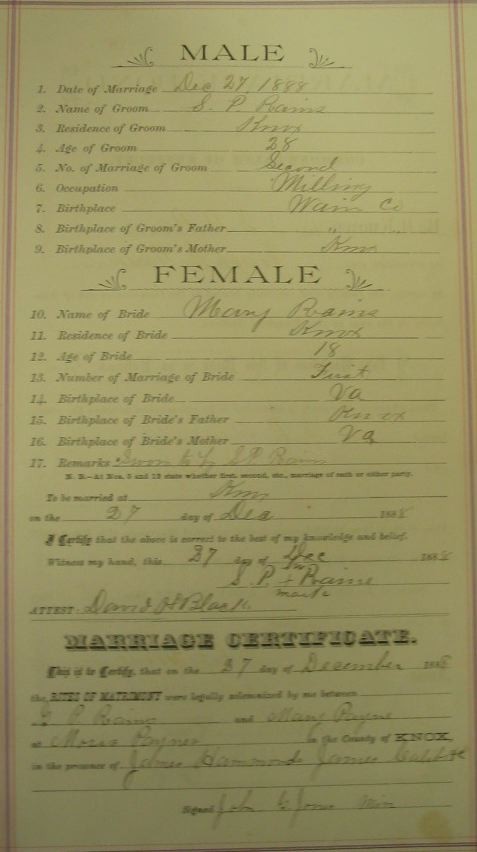 MALE
1. Date of Marriage Dec 27, 1888
2. Name of Groom S. P. Rains
3. Residence of Groom Knox
4. Age of Groom 28
5. No. of Marriage of Groom Second
6. Occupation Milling
7. Birthplace Wain Co
8. Birthplace of Groom's Father " "
9. Birthplace of Groom's Mother Knox
FEMALE
10. Name of Bride Mary Rains
11. Residence of Bride Knox
12. Age of Bride 18
13. Number of Marriage of Bride First
14. Birthplace of Bride Va
15. Birthplace of Bride's Father Knox
16. Birthplace of Bride's Mother Va
17. Remarks Sworn to by S P Rains
N. B.—At Nos. 5 and 13 state whether first, second, etc., marriage of each or either party.
To be married at Knox
on the 27 day of Dec 1888
I Certify that the above is correct to the best of my knowledge and belief.
Witness my hand, this 27 day of Dec 1888
S. P. + Rains
mark
ATTEST: David H Black
MARRIAGE CERTIFICATE.
This is to Certify, that on the 27 day of December 1888
the RITES OF MATRIMONY were legally solemnized by me between
S P Rains and Mary Payne
at Payner in the County of KNOX,
in the presence of James Hammonds James
Signed John G Jones Min